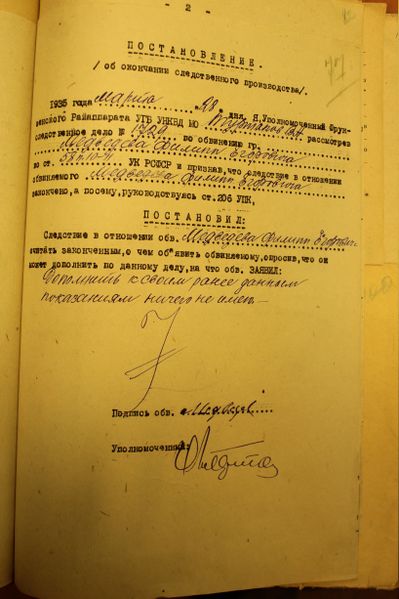 - 2 -
77
ПОСТАНОВЛЕНИЕ.
/об окончании следственного производства/.
1935 года Марта 28 дня Я, Уполномоченный Фрун-
зенского Райаппарата УГБ УНКВД МО рассмотрев
следственное дело № 1309 по обвинению гр.
Медведева Филипп Федоровича
по ст. 58 п. 10-11 УК РСФСР и признав, что следствие в отношении
обвиняемого Медведева Филипп Федоровича
закончено, а посему, руководствуясь ст. 206 УПК,
ПОСТАНОВИЛ:
Следствие в отношении обв. Медведева Филипп Федорович
считать законченным, о чем об'явить обвиняемому, опросив, что он
может дополнить по данному делу, на что обв. ЗАЯВИЛ:
Дополнить к своим ранее данным
показаниям ничего не имею.—
Подпись обв. Медведев
Уполномоченный: